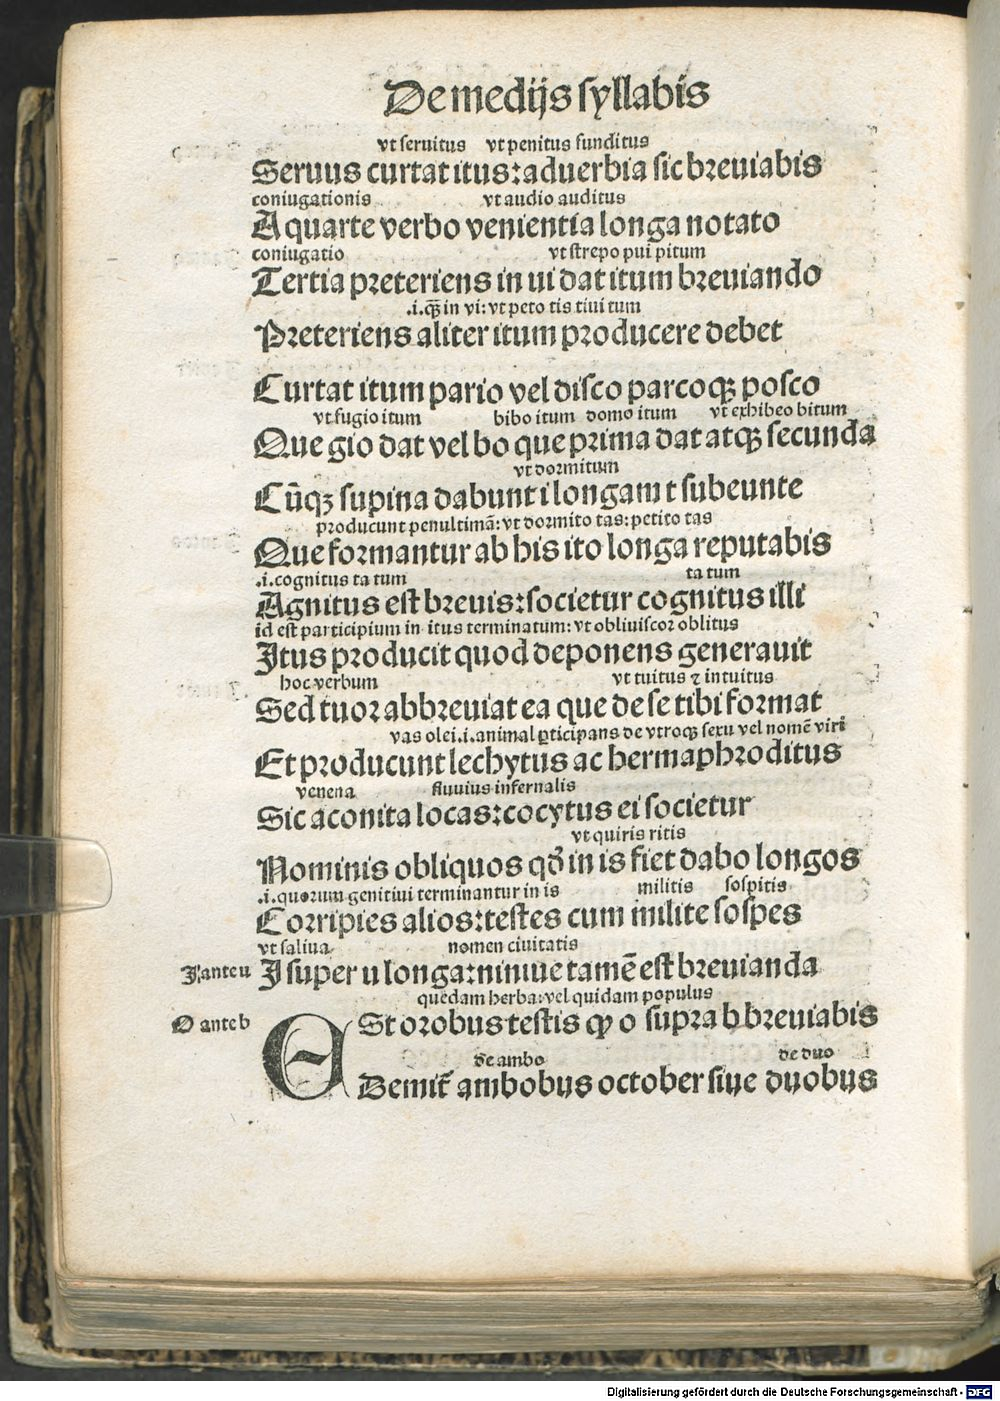 De medijs syllabis
vt seruitus vt penitus funditus
Seruus curtat itus: aduerbia sic breuiabis
coniugationis vt audio auditus
A quarte verbo venientia longa notato
coniugatio vt strepo pui pitum
Tertia preteriens in ui dat itum breuiando
.i. qꝫ in vi: vt peto tis tiui tum
Preteriens aliter itum producere debet
Curtat itum pario vel disco parcoqꝫ posco
vt fugio itum bibo itum domo itum vt exhibeo bitum
Que gio dat vel bo que prima dat atqꝫ secunda
vt dormitum
Cūqꝫ supina dabunt i longam t subeunte
producunt penultimā: vt dormito tas: petito tas
Que formantur ab his ito longa reputabis
.i. cognitus ta tum ta tum
Agnitus est breuis: societur cognitus illi
id est participium in itus terminatum: vt obliuiscor oblitus
Itus producit quod deponens generauit
hoc verbum vt tuitus ⁊ intuitus
Sed tuor abbreuiat ea que de se tibi format
vas olei .i. animal ꝑticipans de vtroqꝫ sexu vel nomē viri
Et producunt lechytus ac hermaphroditus
venena fluuius infernalis
Sic aconita locas: cocytus ei societur
vt quiris ritis
Nominis obliquos qđ in is fiet dabo longos
.i. quorum genitiui terminantur in is militis sospitis
Corripies alios: testes cum milite sospes
vt saliua nomen ciuitatis
I ante u I super u longa: niniue tamē est breuianda
quedam herba: vel quidam populus
O ante b OSt orobus testis ꝙ o supra b breuiabis
de ambo de duo
Demit̄ ambobus october siue duobus
Digitalisierung gefördert durch die Deutsche Forschungsgemeinschaft - DFG